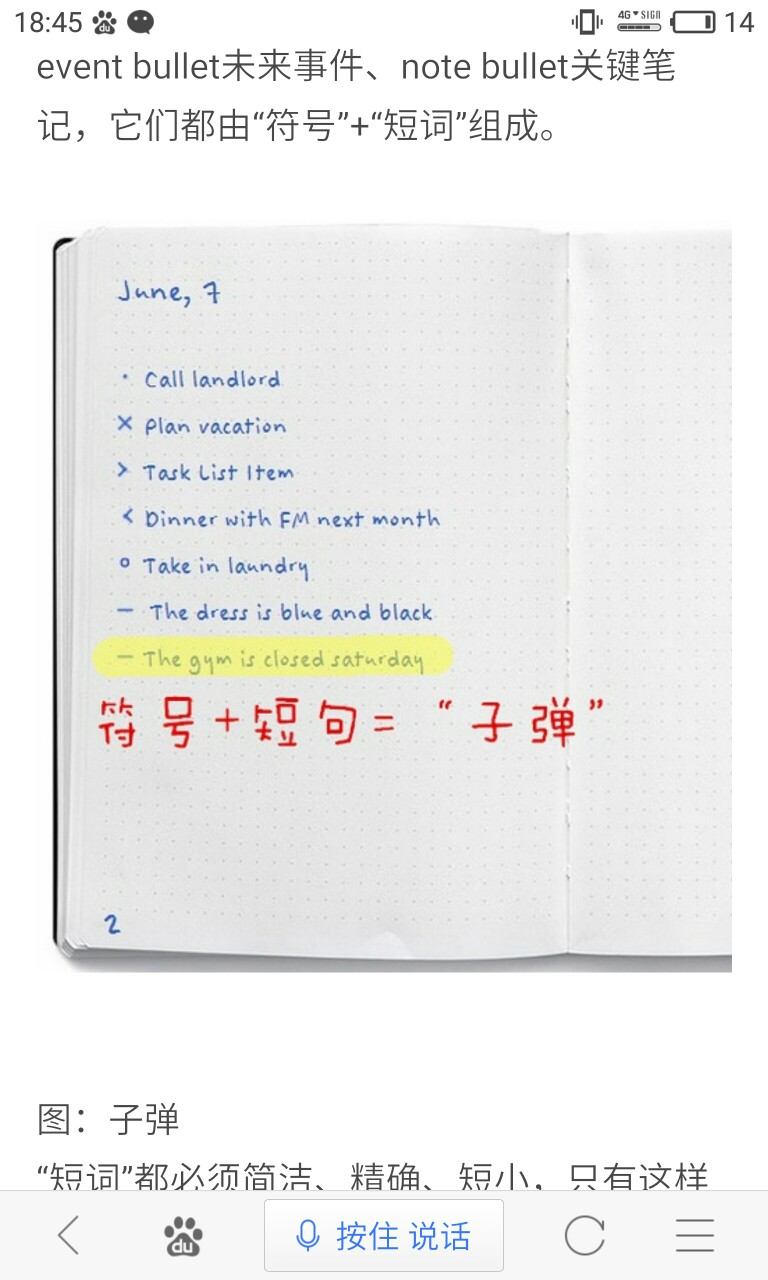 18:45 du 4G SIGN 14
event bullet未来事件、note bullet关键笔
记，它们都由“符号”+“短词”组成。
June, 7
· Call landlord
× Plan vacation
> Task List Item
< Dinner with FM next month
o Take in laundry
— The dress is blue and black
— The gym is closed saturday
符号+短句=“子弹”
2
图：子弹
“短词”都必须简洁、精确、短小，只有这样
du 按住 说话